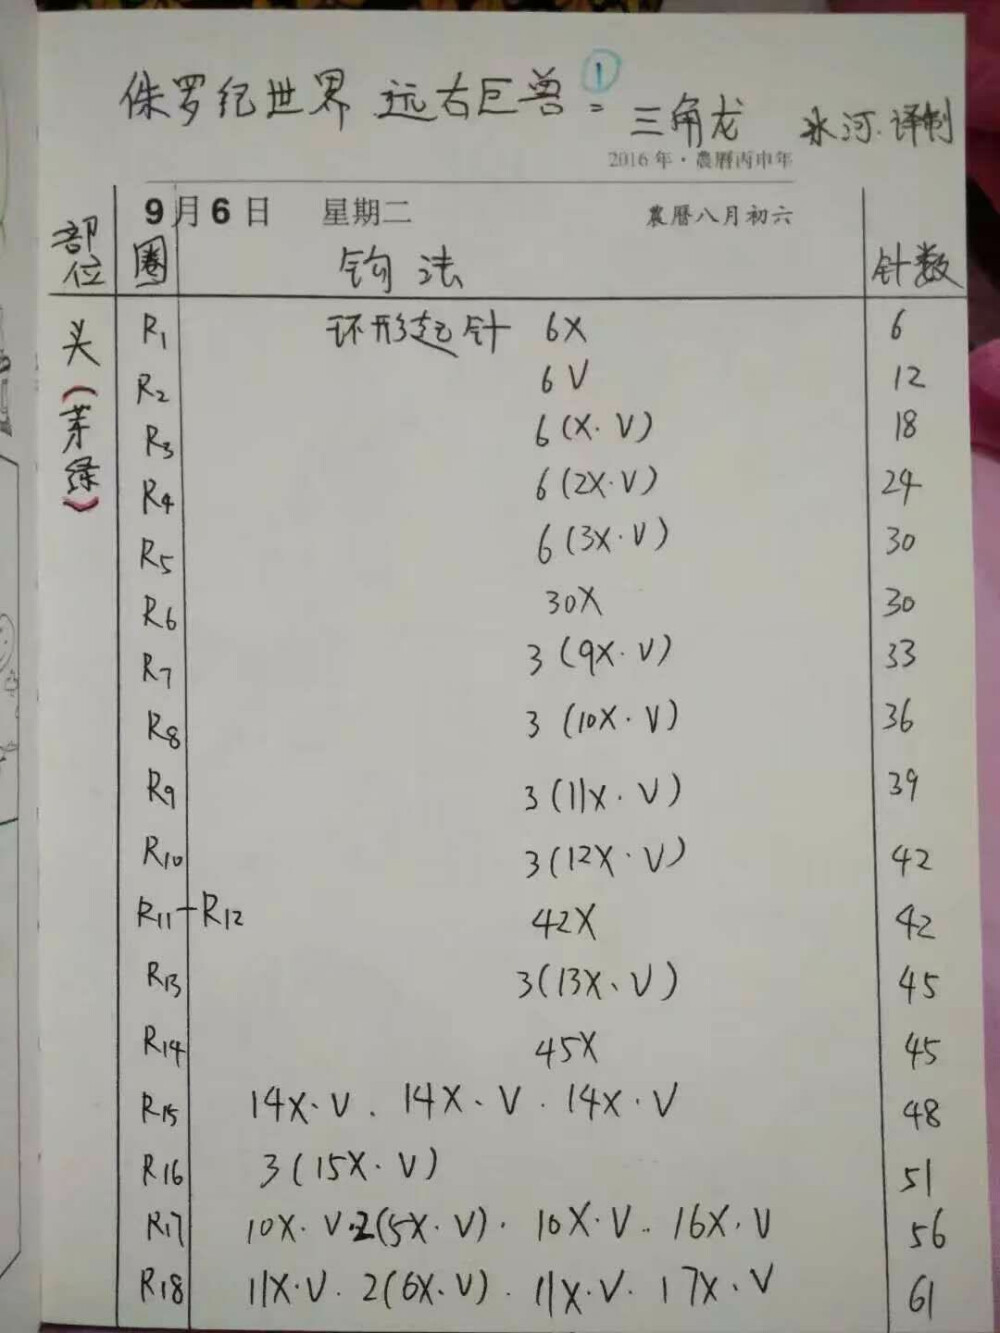 侏罗纪世界 远古巨兽 = ① 三角龙 冰河.译制
2016年·農曆丙申年
9月6日 星期二 農曆八月初六
部位 圈 钩法 针数
头(芽绿)
R1 环形起针 6X 6
R2 6V 12
R3 6(X·V) 18
R4 6(2X·V) 24
R5 6(3X·V) 30
R6 30X 30
R7 3(9X·V) 33
R8 3(10X·V) 36
R9 3(11X·V) 39
R10 3(12X·V) 42
R11-R12 42X 42
R13 3(13X、V) 45
R14 45X 45
R15 14X·V. 14X·V. 14X·V 48
R16 3(15X·V) 51
R17 10X·V·2(5X·V)·10X·V..16X·V 56
R18 11X·V.2(6X·V).11X·V.17X·V 61